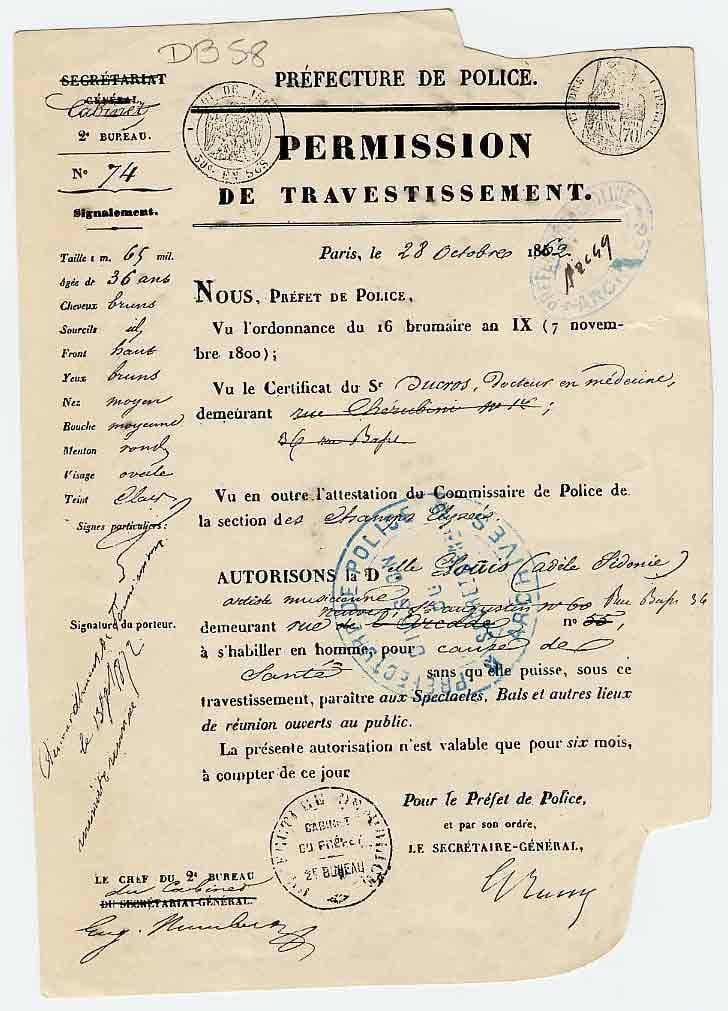 DB58
SECRÉTARIAT
GÉNÉRAL,
Cabinet
2e BUREAU.
No 74
Signalement.
Taille 1 m. 65 mil.
Agée de 36 ans
Cheveux bruns
Sourcils id
Front haut
Yeux bruns
Nez moyen
Bouche moyenne
Menton rond
Visage ovale
Teint Clair
Signes particuliers:
Signature du porteur.
le 13 1872
PRÉFECTURE DE POLICE.
50c. EN SUS
PERMISSION
DE TRAVESTISSEMENT.
Paris, le 28 Octobre 1862
Arc 49
NOUS, PRÉFET DE POLICE,
Vu l'ordonnance du 16 brumaire an IX (7 novem-
bre 1800);
Vu le Certificat du Sr Ducros, docteur en médecine,
demeurant rue Chérubini no ;
36 rue
Vu en outre l'attestation du Commissaire de Police de
la section des Champs Elysées.
AUTORISONS la Delle Louis (adèle Sidonie)
artiste musicienne
neuve St augustin no 60 Rue 36
demeurant rue de no 55,
à s'habiller en homme pour cause de
Santé sans qu'elle puisse, sous ce
travestissement, paraître aux Spectacles, Bals et autres lieux
de réunion ouverts au public.
La présente autorisation n'est valable que pour six mois,
à compter de ce jour
PRÉFECTURE DE POLICE
ARCHIVES
Pour le Préfet de Police,
et par son ordre,
LE SECRÉTAIRE-GÉNÉRAL,
PRÉFECTURE DE POLICE
CABINET
DU PRÉFET
2E BUREAU
LE CHEF DU 2e BUREAU
du Cabinet
DU SECRÉTARIAT-GÉNÉRAL.
Eug.